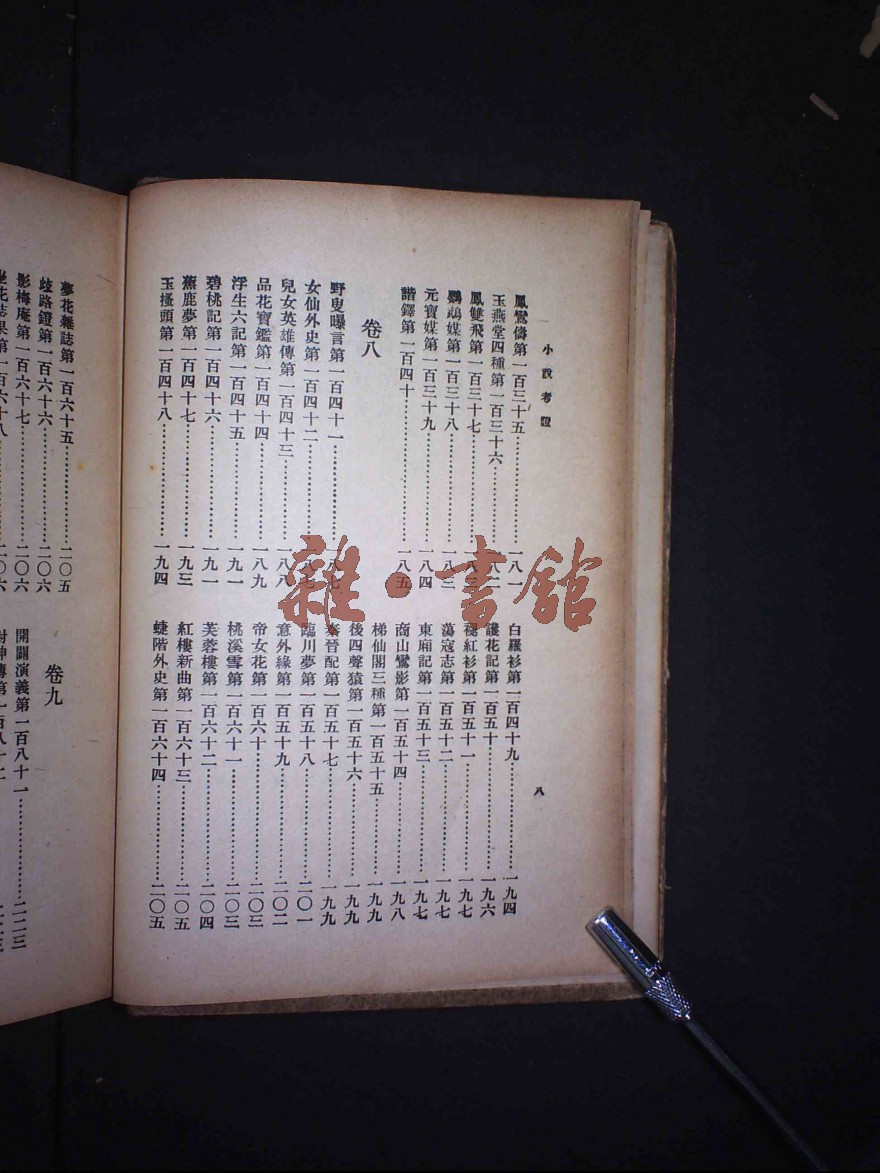 小說考證
鳳鸞儔第一百三十五……一八一
玉燕堂四種第一百三十六……一八二
鳳雙飛第一百三十七……一八二
鸚鵡媒第一百三十八……一八三
元寶媒第一百三十九……一八四
諧鐸第一百四十……一八五
卷八
野叟曝言第一百四十一……一八七
女仙外史第一百四十二……一八七
兒女英雄傳第一百四十三……一八八
品花寶鑑第一百四十四……一八九
浮生六記第一百四十五……一九一
碧桃記第一百四十六……一九一
蕉鹿夢第一百四十七……一九三
玉搔頭第一百四十八……一九四
白羅衫第一百四十九……一九四
護花記第一百五十……一九六
褪紅衫第一百五十一……一九七
蕩寇志第一百五十二……一九七
東廂記第一百五十三……一九七
商山鸞影第一百五十四……一九八
梯仙閣三種第一百五十五……一九九
後四聲猿第一百五十六……一九九
秦晉配第一百五十七……一九九
臨川夢第一百五十八……二〇一
意外緣第一百五十九……二〇二
帝女花第一百六十……二〇三
桃溪雪第一百六十一……二〇三
芙蓉樓第一百六十二……二〇四
紅樓新曲第一百六十三……二〇五
蜨階外史第一百六十四……二〇五
八
夢花雜誌第一百六十五……二〇五
歧路鐙第一百六十六……二〇六
影梅庵第一百六十七……二〇六
卷九
開闢演義第一百八十一……二二三
雜·書館